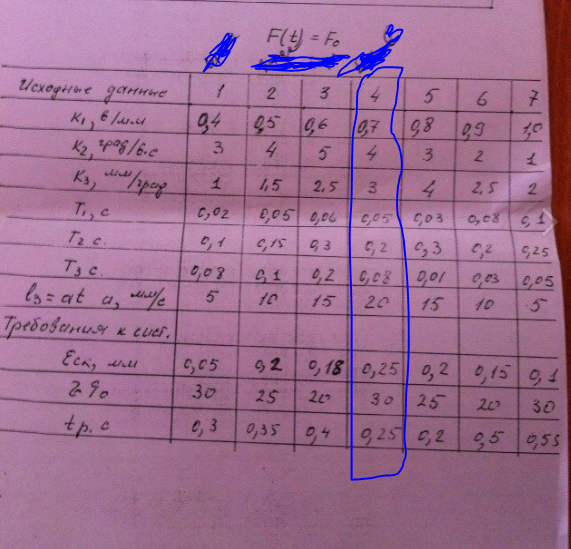 F(t) = F₀
Исходные данные 1 2 3 4 5 6 7
K₁, в/мм 0,4 0,5 0,6 0,7 0,8 0,9 1,0
K₂, град/в.с 3 4 5 4 3 2 1
K₃, мм/град 1 1,5 2,5 3 4 2,5 2
T₁, с 0,02 0,05 0,06 0,05 0,03 0,08 0,1
T₂ с. 0,1 0,15 0,3 0,2 0,3 0,2 0,25
T₃ с. 0,08 0,1 0,2 0,08 0,01 0,03 0,05
l₃=at a, мм/с 5 10 15 20 15 10 5
Требования к сист.
Eск, мм 0,05 0,2 0,18 0,25 0,2 0,15 0,1
30 25 20 30 25 20 30
tр. с 0,3 0,35 0,4 0,25 0,2 0,5 0,55